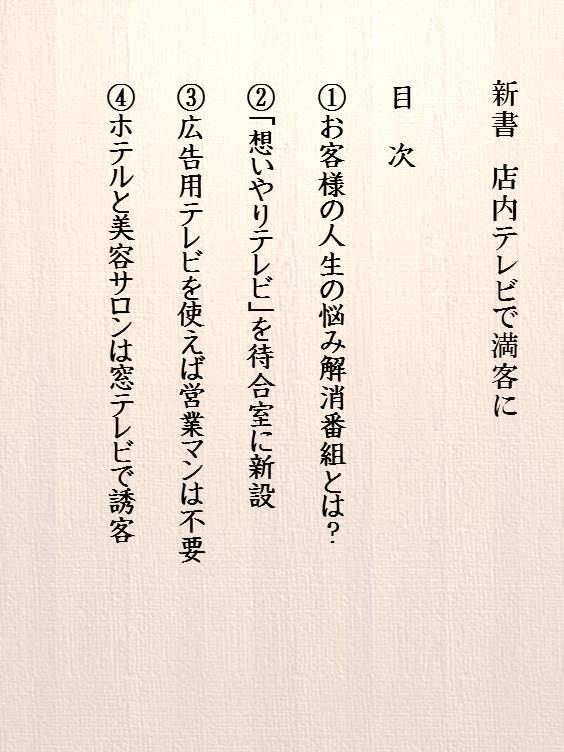 新書　店内テレビで満客に
目　次
①お客様の人生の悩み解消番組とは？
②「想いやりテレビ」を待合室に新設
③広告用テレビを使えば営業マンは不要
④ホテルと美容サロンは窓テレビで誘客